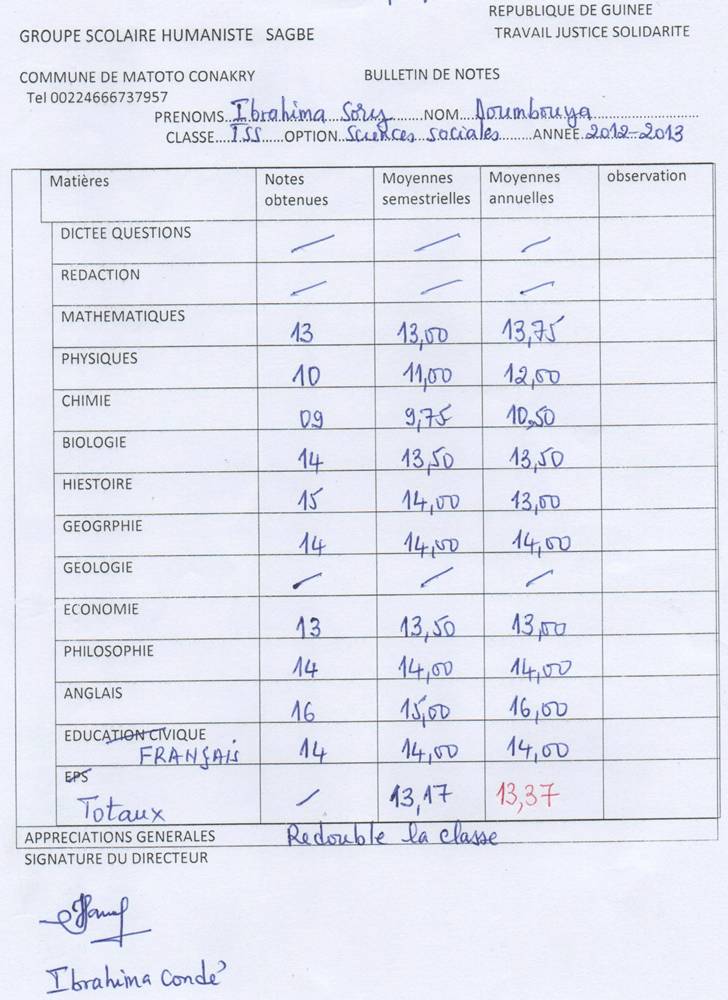 REPUBLIQUE DE GUINEE
GROUPE SCOLAIRE HUMANISTE SAGBE
TRAVAIL JUSTICE SOLIDARITE
COMMUNE DE MATOTO CONAKRY
BULLETIN DE NOTES
Tel 00224666737957
PRENOMS Ibrahima Sory NOM Doumbouya
CLASSE TSS OPTION Sciences sociales ANNEE 2012-2013
Matières Notes obtenues Moyennes semestrielles Moyennes annuelles observation
DICTEE QUESTIONS
REDACTION
MATHEMATIQUES 13 13,00 13,75
PHYSIQUES 10 11,00 12,00
CHIMIE 09 9,75 10,50
BIOLOGIE 14 13,50 13,50
HIESTOIRE 15 14,00 13,00
GEOGRPHIE 14 14,00 14,00
GEOLOGIE
ECONOMIE 13 13,50 13,00
PHILOSOPHIE 14 14,00 14,00
ANGLAIS 16 15,00 16,00
EDUCATION CIVIQUE
FRANÇAIS 14 14,00 14,00
EPS
Totaux 13,17 13,37
APPRECIATIONS GENERALES Redouble la classe
SIGNATURE DU DIRECTEUR
Ibrahima Condé